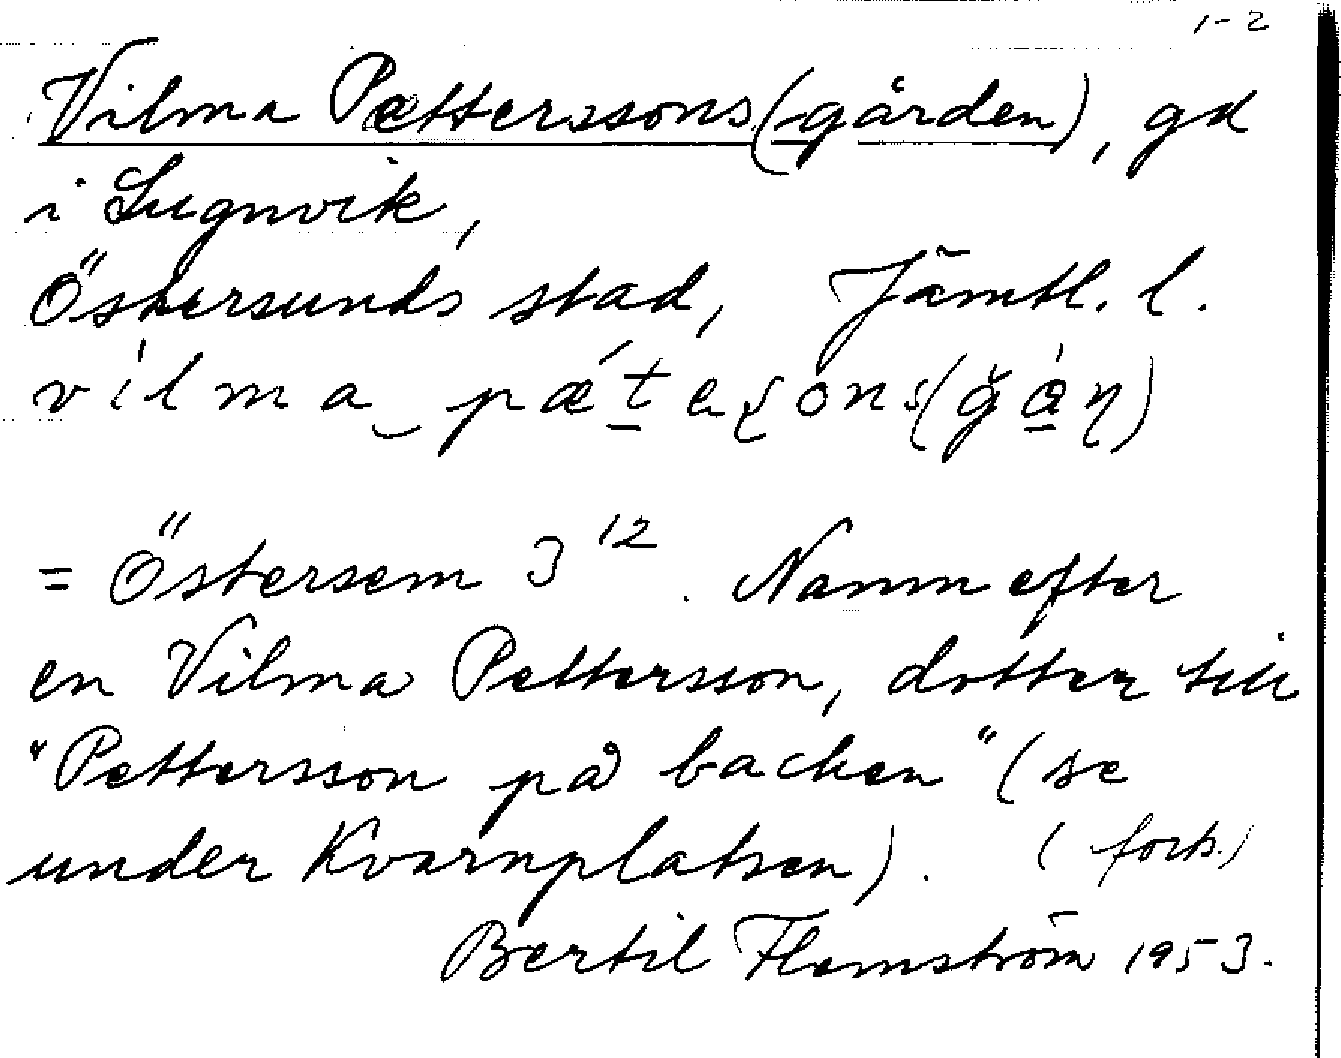 1-2
Vilma Petterssons(-gården), gd
i Lugnvik,
Östersunds stad, Jämtl. l.
= Östersem 3¹². Namn efter
en Vilma Pettersson, dotter till
"Pettersson på backen" (se
under Kvarnplatsen). (forts.)
Bertil Flemström 1953.